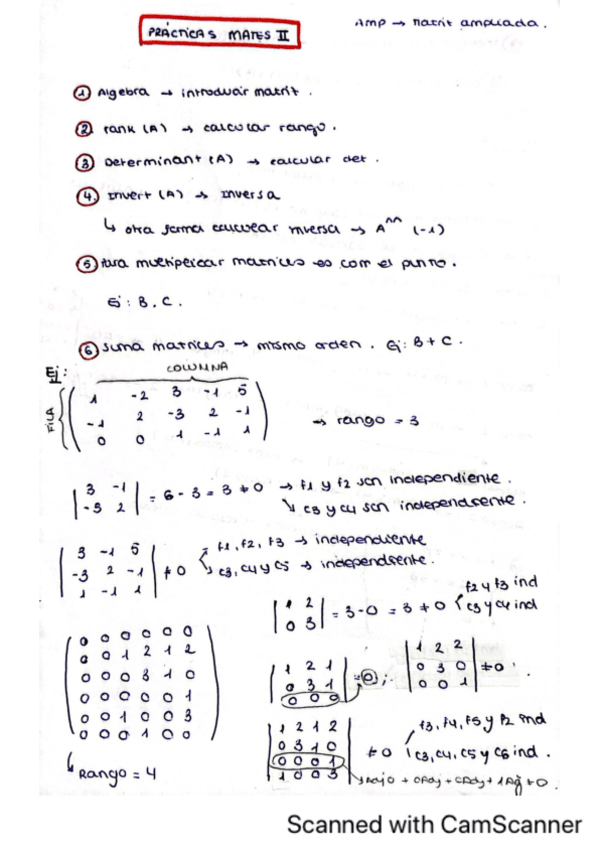 PRÁCTICAS MATES II
AMP → matriz ampliada.
① Algebra → introducir matriz.
② rank (A) → calcular rango.
③ Determinant (A) → calcular det.
④ Invert (A) → Inversa
↳ otra forma calcular inversa → A^^ (-1)
⑤ Para multiplicar matrices es con el punto.
Ej: B . C.
⑥ Suma matrices → mismo orden. Ej: B + C.
Ej:
COLUMNA
FILA
1 -2 3 -1 5
-1 2 -3 2 -1
0 0 1 -1 1
→ rango = 3
| 3 -1 |
| -3 2 | = 6 - 3 = 3 ≠ 0 → f1 y f2 son independiente.
↘ c3 y c4 son independiente.
3 -1 5
-3 2 -1
1 -1 1
≠ 0
f1, f2, f3 → independiente
c3, c4 y c5 → independiente.
| 1 2 |
| 0 3 | = 3 - 0 = 3 ≠ 0
f2 y f3 ind
c3 y c4 ind
0 0 0 0 0 0
0 0 1 2 1 2
0 0 0 3 1 0
0 0 0 0 0 1
0 0 1 0 0 3
0 0 0 1 0 0
↳ Rango = 4
1 2 1
0 3 1
0 0 0
= 0;
1 2 2
0 3 0
0 0 1
≠ 0.
1 2 1 2
0 3 1 0
0 0 0 1
1 0 0 3
≠ 0
f3, f4, f5 y f2 ind
c3, c4, c5 y c6 ind.
Scanned with CamScanner